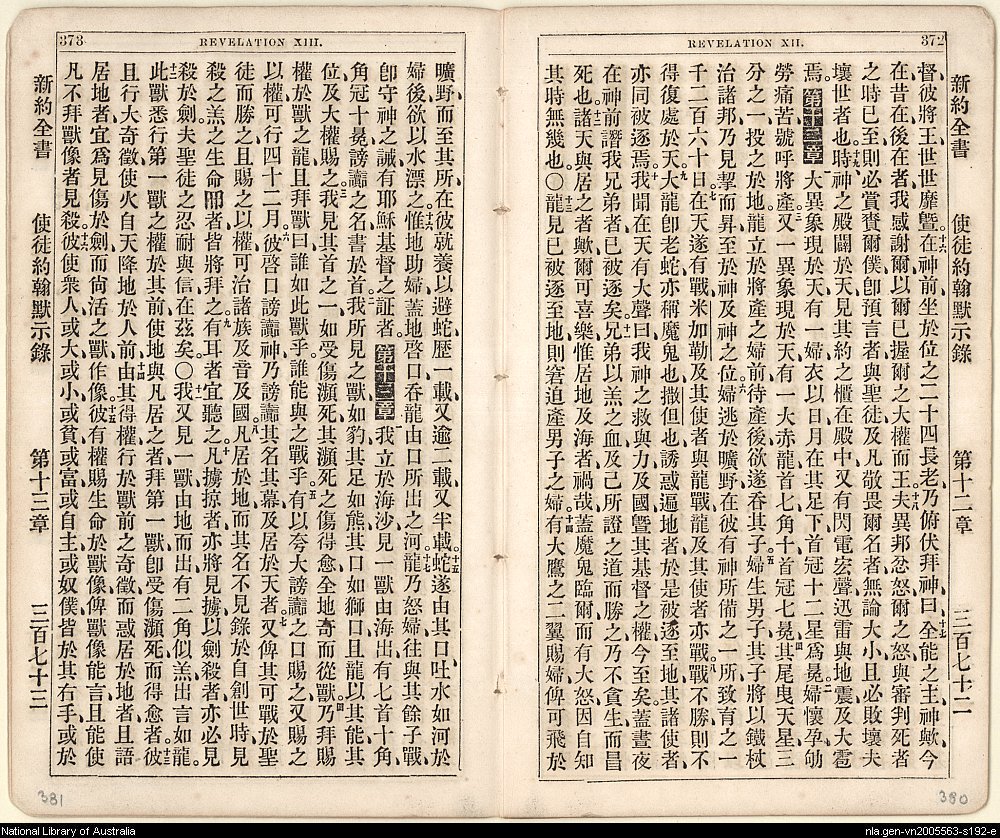 REVELATION XII. 372
新約全書 使徒約翰默示錄 第十二章 三百七十二
督、彼將王世世靡曁。十六在神前坐於位之二十四長老、乃俯伏拜神曰、十七全能之主神歟、今
在、昔在、後在者、我感謝爾、以爾已握爾之大權而王。十八夫異邦忿怒、爾之怒與審判死者
之時已至、則必賞賚爾僕、卽預言者與聖徒、及凡敬畏爾名者、無論大小、且必敗壞夫
壞世者也。十九時神之殿闢於天、見其約之櫃在殿中、又有閃電宏聲迅雷與地震及大雹
焉。第十二章 一大異象現於天、有一婦衣以日、月在其足下、首冠十二星爲冕。二婦懷孕劬
勞痛苦號呼將產。三又一異象現於天、有一大赤龍、首七角十、首冠七冕。四其尾曳天星三
分之一、投之於地、龍立於將產之婦前、待產後欲遂吞其子。五婦生男子、其子將以鐵杖
治諸邦、乃見挈而昇至於神及神之位。六婦逃於曠野、在彼有神所備之一所、致育之一
千二百六十日。七在天遂有戰、米加勒及其使者與龍戰、龍及其使者亦戰、八戰不勝、則不
得復處於天。九大龍卽老蛇、亦稱魔鬼也、撒但也、誘惑遍地者、於是被逐至地、其諸使者、
亦同被逐焉。十我聞在天有大聲曰、我神之救與力及國曁其基督之權、今至矣、蓋晝夜
在神前譖我兄弟者、已被逐矣。十一兄弟以羔之血及己所證之道而勝之、乃不貪生而冒
死也。十二諸天與居之者歟、爾可喜樂、惟居地及海者禍哉、蓋魔鬼臨爾而有大怒、因自知
其時無幾也。○十三龍見已被逐至地、則窘迫產男子之婦。十四有大鷹之二翼賜婦、俾可飛於
380
373 REVELATION XIII.
曠野、而至其所、在彼就養以避蛇、歷一載、又逾二載、又半載。十五蛇遂由其口吐水如河於
婦後、欲以水漂之。十六惟地助婦、蓋地啓口吞龍由口所出之河。十七龍乃怒婦、往與其餘子戰、
卽守神之誡、有耶穌基督之証者。第十三章 一我立於海沙、見一獸由海出、有七首十角、
角冠十冕、謗讟之名書於首。二我所見之獸如豹、其足如熊、其口如獅口、且龍以其能其
位及大權賜之。三我見其首之一如受傷瀕死、其瀕死之傷得愈、全地奇而從獸。四乃拜賜
權於獸之龍、且拜獸曰、誰如此獸乎、誰能與之戰乎。五有以夸大謗讟之口賜之、又賜之
以權可行四十二月。六彼啓口謗讟神、乃謗讟其名其幕及居於天者。七又俾其可戰於聖
徒而勝之、且賜之以權可治諸族及音及國。八凡居於地、而其名不見錄於自創世時見
殺之羔之生命冊者、皆將拜之。九有耳者宜聽之。十凡擄掠者亦將見擄、以劍殺者亦必見
殺於劍、夫聖徒之忍耐與信在茲矣。○十一我又見一獸由地而出、有二角似羔、出言如龍。
十二此獸悉行第一獸之權於其前、使地與凡居之者拜第一獸、卽受傷瀕死而得愈者。十三彼
且行大奇徵、使火自天降地於人前。十四由其得權行於獸前之奇徵、而惑居於地者、且語
居地者宜爲見傷於劍而尙活之獸作像。十五彼有權賜生命於獸像、俾獸像能言、且能使
凡不拜獸像者見殺。十六彼使衆人、或大或小、或貧或富、或自主或奴僕、皆於其右手或於
新約全書 使徒約翰默示錄 第十三章 三百七十三
381
National Library of Australia
nla.gen-vn2005563-s192-e